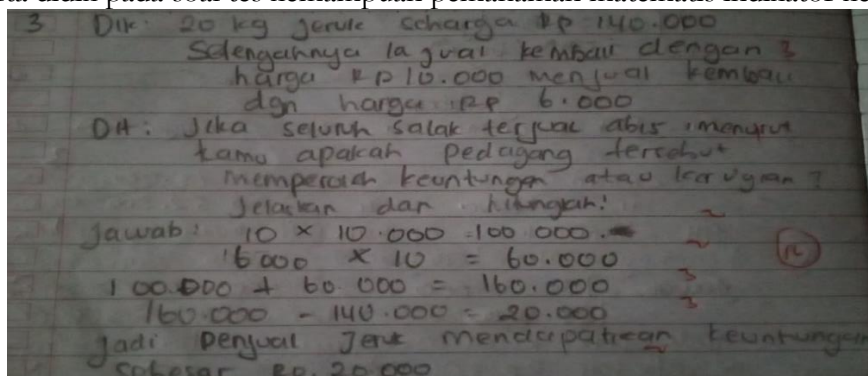 3 Dik: 20 kg jeruk seharga Rp 140.000
Setengahnya ia jual kembali dengan 3
harga Rp 10.000 menjual kembali
dgn harga Rp 6.000
Dit: Jika seluruh salak terjual abis, menurut
kamu apakah pedagang tersebut
memperoleh keuntungan atau kerugian?
Jelaskan dan hitunglah!
Jawab: 10 × 10.000 = 100.000.
6000 × 10 = 60.000
100.000 + 60.000 = 160.000 3
160.000 - 140.000 = 20.000 3
Jadi penjual Jeruk mendapatkan keuntungan
sebesar Rp. 20.000